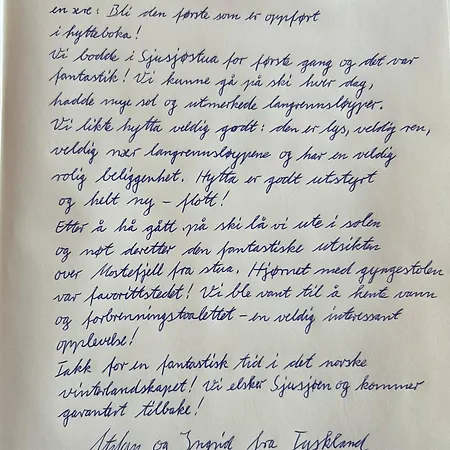 en ære: Bli den første som er oppført
i hytteboka!
Vi bodde i Sjusjøstua for første gang og det var
fantastik! Vi kunne gå på ski hver dag,
hadde mye sol og utmerkede langrennsløyper.
Vi likte hytta veldig godt: den er lys, veldig ren,
veldig nær langrennsløypene og har en veldig
rolig beliggenhet. Hytta er godt utstyrt
og helt ny – flott!
Etter å hå gått på ski lå vi ute i solen
og nøt deretter den fantastiske utsikten
over Mostefjell fra stua. Hjørnet med gyngestolen
var favorittstedet! Vi ble vant til å hente vann
og forbrenningstoalettet – en veldig interessant
opplevelse!
Takk for en fantastisk tid i det norske
vinterlandskapet! Vi elsker Sjusjøen og kommer
garantert tilbake!
og Ingrid fra Tyskland